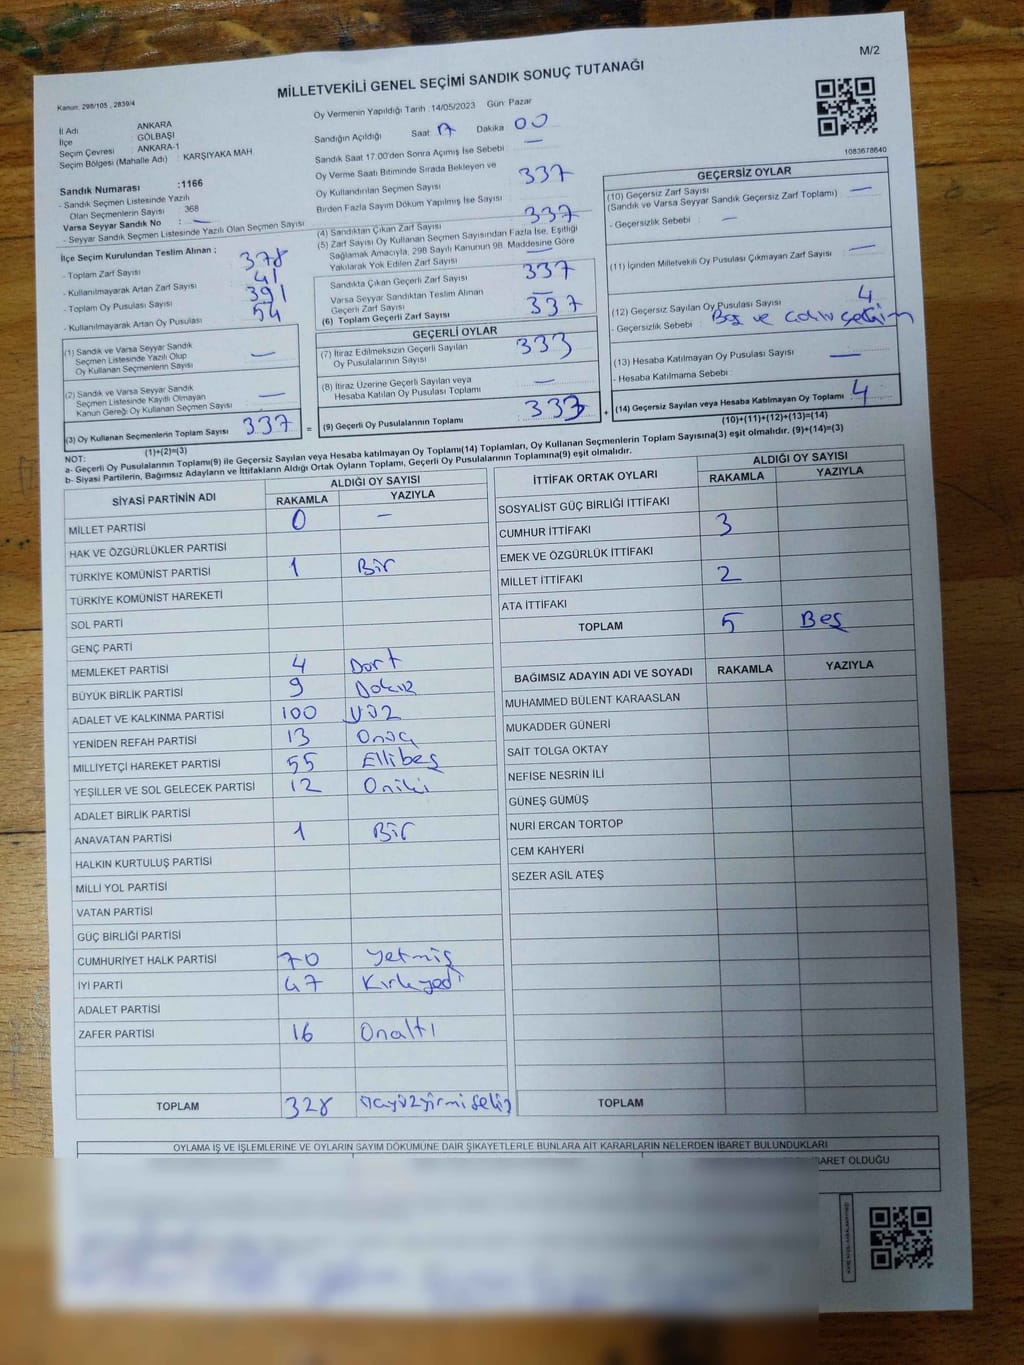 M/2
MİLLETVEKİLİ GENEL SEÇİMİ SANDIK SONUÇ TUTANAĞI
Kanun: 298/105 , 2839/4
İl Adı ANKARA
İlçe GÖLBAŞI
Seçim Çevresi ANKARA-1
Seçim Bölgesi (Mahalle Adı) : KARŞIYAKA MAH
Sandık Numarası :1166
- Sandık Seçmen Listesinde Yazılı
Olan Seçmenlerin Sayısı : 368
Varsa Seyyar Sandık No : —
- Seyyar Sandık Seçmen Listesinde Yazılı Olan Seçmen Sayısı
İlçe Seçim Kurulundan Teslim Alınan :
- Toplam Zarf Sayısı 378
- Kullanılmayarak Artan Zarf Sayısı 41
- Toplam Oy Pusulası Sayısı 391
- Kullanılmayarak Artan Oy Pusulası 54
(1) Sandık ve Varsa Seyyar Sandık
Seçmen Listesinde Yazılı Olup
Oy Kullanan Seçmenlerin Sayısı —
(2) Sandık ve Varsa Seyyar Sandık
Seçmen Listesinde Kayıtlı Olmayan
Kanun Gereği Oy Kullanan Seçmen Sayısı —
(3) Oy Kullanan Seçmenlerin Toplam Sayısı 337 =
(1)+(2)=(3)
Oy Vermenin Yapıldığı Tarih :14/05/2023 Gün: Pazar
Sandığın Açıldığı Saat: 17 Dakika 00
Sandık Saat 17:00'den Sonra Açımış İse Sebebi : —
Oy Verme Saati Bitiminde Sırada Bekleyen ve
Oy Kullandırılan Seçmen Sayısı 337
Birden Fazla Sayım Döküm Yapılmış İse Sayısı :
(4) Sandıktan Çıkan Zarf Sayısı 337
(5) Zarf Sayısı Oy Kullanan Seçmen Sayısından Fazla İse, Eşitliği
Sağlamak Amacıyla, 298 Sayılı Kanunun 98. Maddesine Göre
Yakılarak Yok Edilen Zarf Sayısı —
Sandıkta Çıkan Geçerli Zarf Sayısı 337
Varsa Seyyar Sandıktan Teslim Alınan
Geçerli Zarf Sayısı —
(6) Toplam Geçerli Zarf Sayısı 337
GEÇERLİ OYLAR
(7) İtiraz Edilmeksizin Geçerli Sayılan
Oy Pusulalarının Sayısı 333
(8) İtiraz Üzerine Geçerli Sayılan veya
Hesaba Katılan Oy Pusulası Toplamı —
(9) Geçerli Oy Pusulalarının Toplamı 333 +
1083678640
GEÇERSİZ OYLAR
(10) Geçersiz Zarf Sayısı —
(Sandık ve Varsa Seyyar Sandık Geçersiz Zarf Toplamı)
- Geçersizlik Sebebi : —
(11) İçinden Milletvekili Oy Pusulası Çıkmayan Zarf Sayısı —
(12) Geçersiz Sayılan Oy Pusulası Sayısı 4
- Geçersizlik Sebebi : Boş ve
(13) Hesaba Katılmayan Oy Pusulası Sayısı —
- Hesaba Katılmama Sebebi :
(14) Geçersiz Sayılan veya Hesaba Katılmayan Oy Toplamı 4
(10)+(11)+(12)+(13)=(14)
NOT:
a- Geçerli Oy Pusulalarının Toplamı(9) ile Geçersiz Sayılan veya Hesaba katılmayan Oy Toplamı(14) Toplamları, Oy Kullanan Seçmenlerin Toplam Sayısına(3) eşit olmalıdır. (9)+(14)=(3)
b- Siyasi Partilerin, Bağımsız Adayların ve İttifakların Aldığı Ortak Oyların Toplamı, Geçerli Oy Pusulalarının Toplamına(9) eşit olmalıdır.
SİYASİ PARTİNİN ADI ALDIĞI OY SAYISI
RAKAMLA YAZIYLA
MİLLET PARTİSİ 0 —
HAK VE ÖZGÜRLÜKLER PARTİSİ
TÜRKİYE KOMÜNİST PARTİSİ 1 Bir
TÜRKİYE KOMÜNİST HAREKETİ
SOL PARTİ
GENÇ PARTİ
MEMLEKET PARTİSİ 4 Dört
BÜYÜK BİRLİK PARTİSİ 9 Dokuz
ADALET VE KALKINMA PARTİSİ 100 Yüz
YENİDEN REFAH PARTİSİ 13 Onüç
MİLLİYETÇİ HAREKET PARTİSİ 55 Ellibeş
YEŞİLLER VE SOL GELECEK PARTİSİ 12 Oniki
ADALET BİRLİK PARTİSİ
ANAVATAN PARTİSİ 1 Bir
HALKIN KURTULUŞ PARTİSİ
MİLLİ YOL PARTİSİ
VATAN PARTİSİ
GÜÇ BİRLİĞİ PARTİSİ
CUMHURİYET HALK PARTİSİ 70 Yetmiş
İYİ PARTİ 47 Kırkyedi
ADALET PARTİSİ
ZAFER PARTİSİ 16 Onaltı
TOPLAM 328
İTTİFAK ORTAK OYLARI ALDIĞI OY SAYISI
RAKAMLA YAZIYLA
SOSYALİST GÜÇ BİRLİĞİ İTTİFAKI
CUMHUR İTTİFAKI 3
EMEK VE ÖZGÜRLÜK İTTİFAKI
MİLLET İTTİFAKI 2
ATA İTTİFAKI
TOPLAM 5 Beş
BAĞIMSIZ ADAYIN ADI VE SOYADI RAKAMLA YAZIYLA
MUHAMMED BÜLENT KARAASLAN
MUKADDER GÜNERİ
SAİT TOLGA OKTAY
NEFİSE NESRİN İLİ
GÜNEŞ GÜMÜŞ
NURİ ERCAN TORTOP
CEM KAHYERİ
SEZER ASİL ATEŞ
TOPLAM
OYLAMA İŞ VE İŞLEMLERİNE VE OYLARIN SAYIM DÖKÜMÜNE DAİR ŞİKAYETLERLE BUNLARA AİT KARARLARIN NELERDEN İBARET BULUNDUKLARI
BARET OLDUĞU